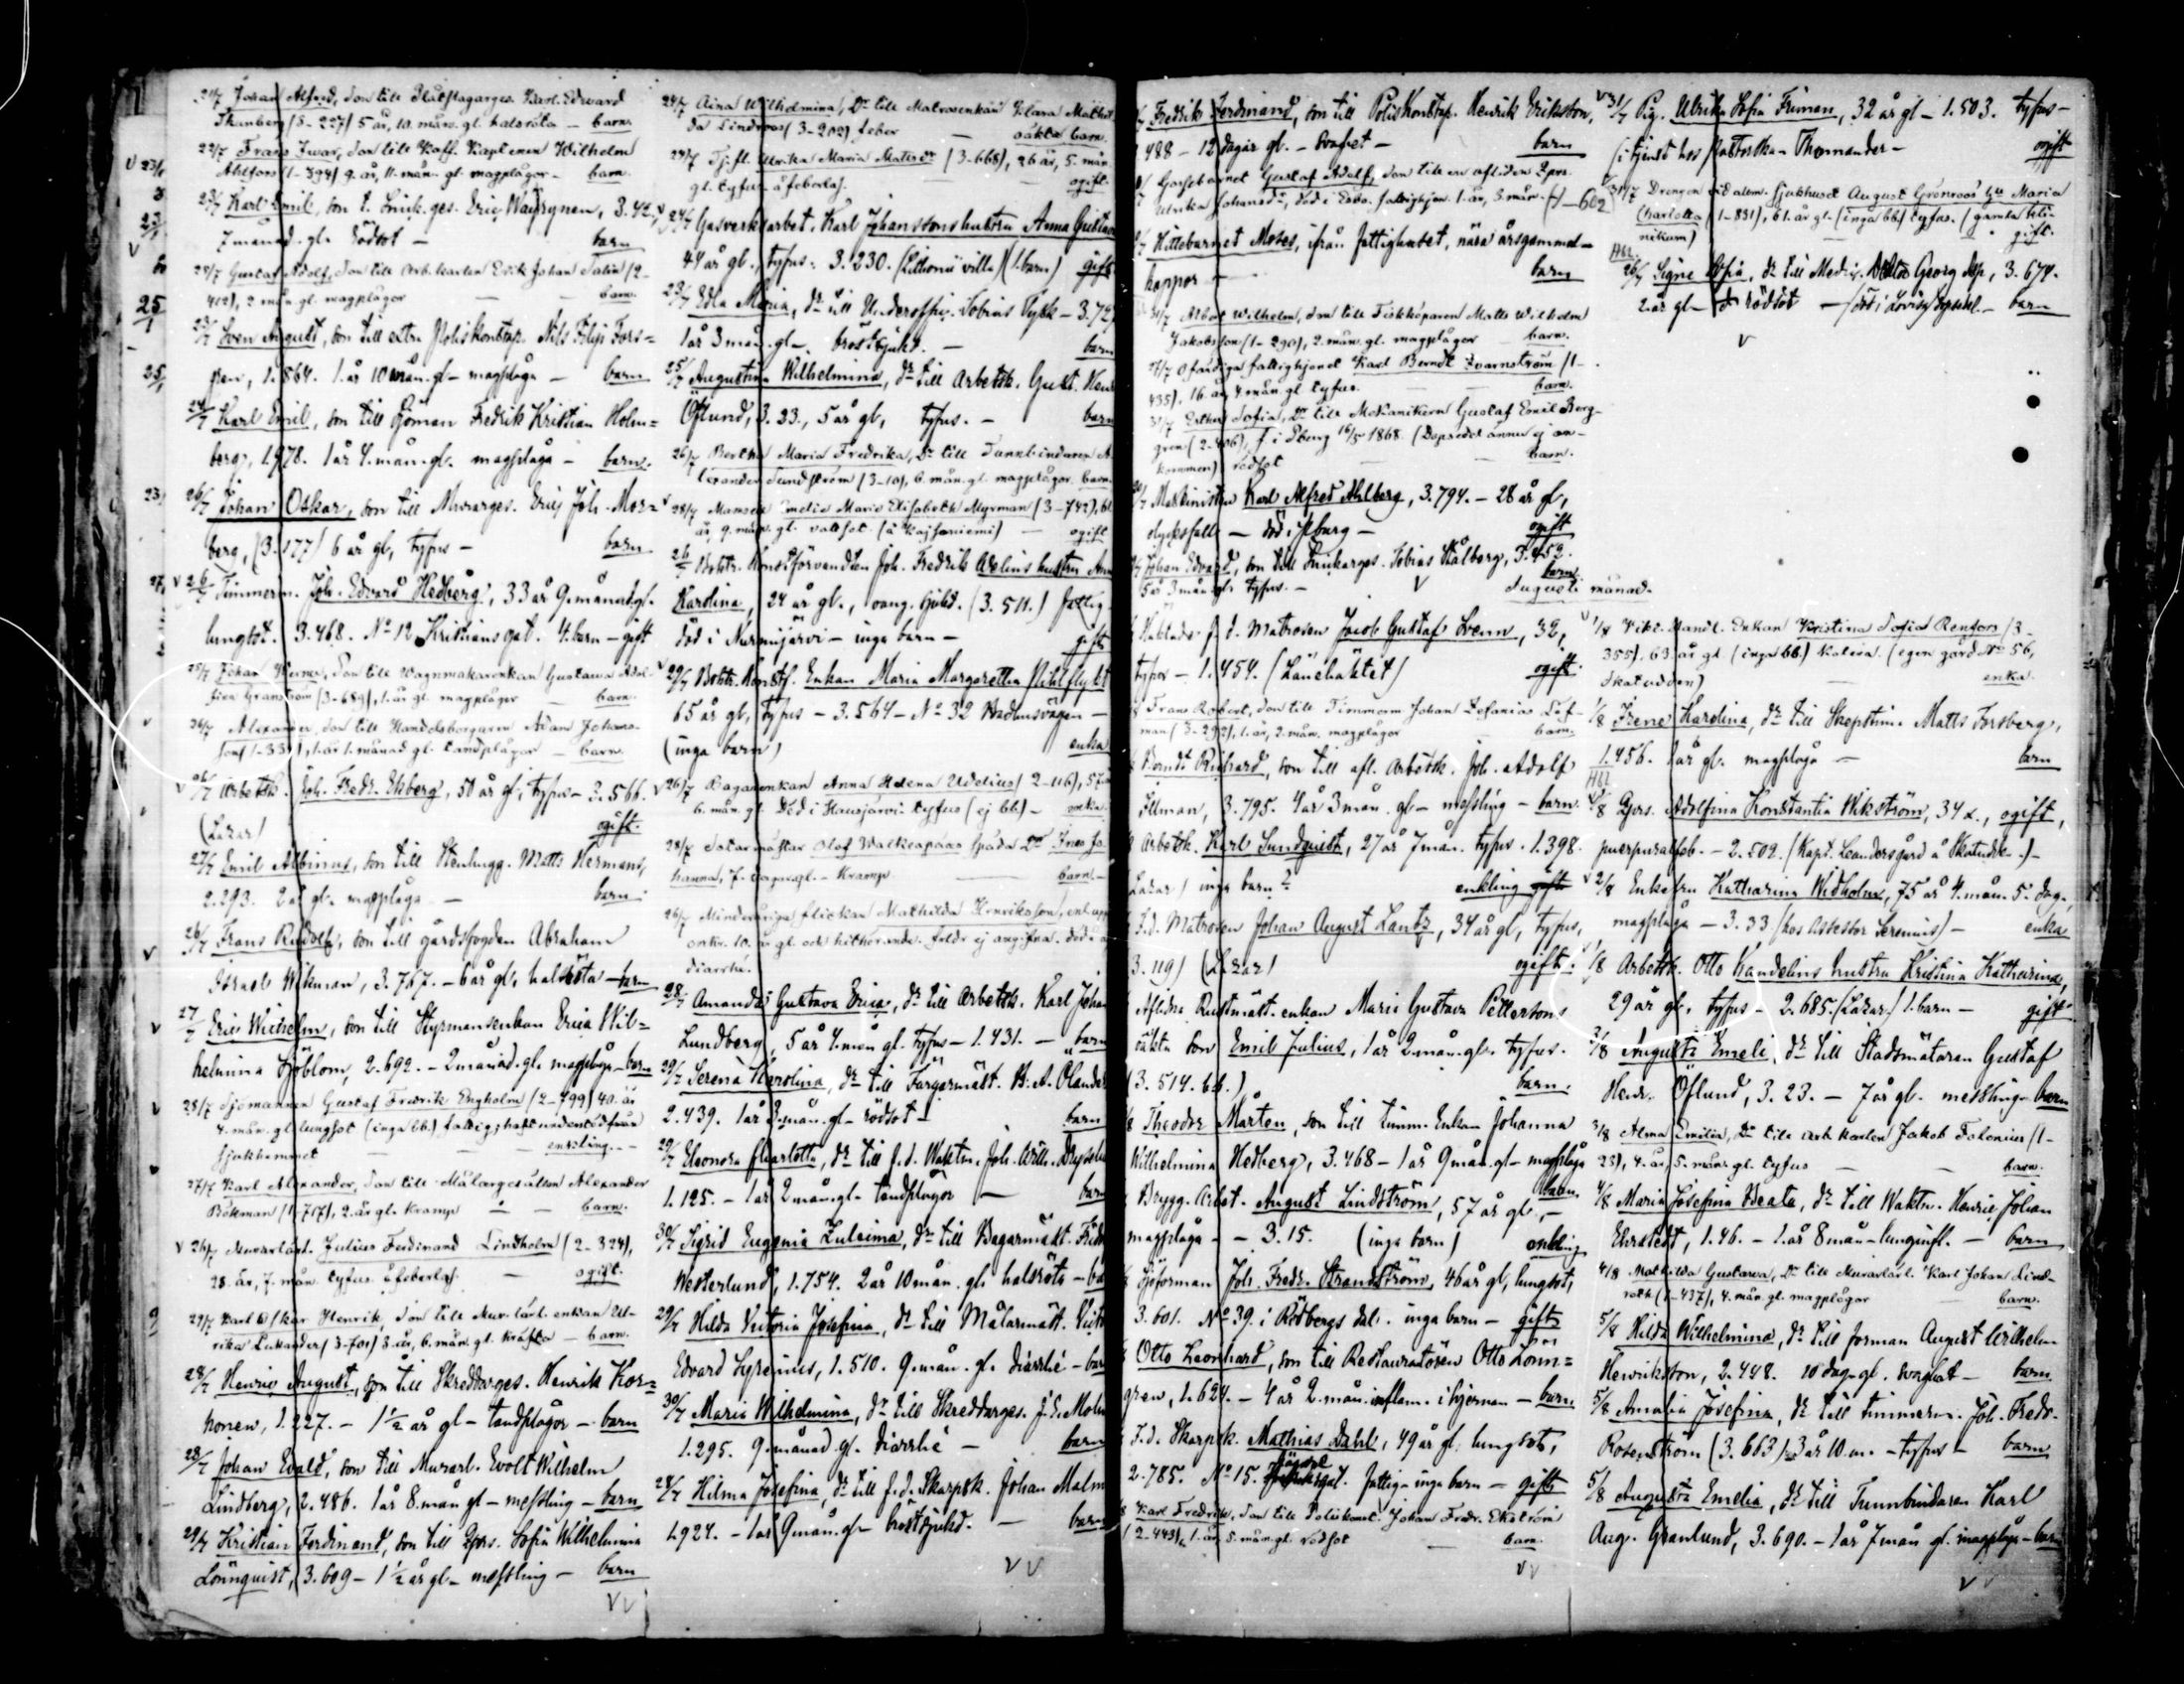 21/7 Johan Alfred, son till Plåtslagarges. Karl Edward
Thunberg (3-227) 5 år, 10. mån. gl. halsröta - barn.
22/7 Frans Iwar, son till Koff. Kaptenen Wilhelm
Ahlfors (1-394) 9. år, 11. mån. gl. magplågor - barn.
23/7 Karl Emil, son t. Snick. ges. Eric Wäyrynen, 3.42,
7 månad. gl. rödsot - barn
25/7 Gustaf Adolf, son till Arb. karlen Erik Johan Salin (2-
402), 2. mån. gl. magplågor - barn.
23/7 Sven August, son till extra Poliskonstap. Nils Filip Fors=
sen, 1.864. 1 år 10 mån. gl. magplåga - barn
24/7 Karl Emil, son till Sjöman Fredrik Kristian Holm=
berg, 1.978. 1 år 4. mån. gl. magplåga - barn.
26/7 Johan Oskar, son till Murarges. Eric Joh. Mor=
berg, (3.177) 6 år gl, typus - barn
26/7 Timmerm. Joh. Edvard Hedberg, 33 år 9. månad. gl.
lungsot. 3.468. No 12 Kristiansgat. 4. barn - gift
25/7 Johan Werner, son till Vagnmakarenkan Gustawa Adol-
fina Granström (3-689), 1. år gl. magplågor - barn.
26/7 Alexander, son till Handelsborgaren Adam Johans-
son (1-33), 1. år 1. månad gl. tandplågor - barn.
26/7 Arbetsk. Joh. Fredr. Ekberg, 50 år gl; typus - 3.566.
(Lazar) ogift.
27/7 Emil Albinus, son till Stenhugg. Matts Hermans,
2.293. 2 år gl. magplåga - barn.
26/7 Frans Rudolf, son till gårdsfogden Abraham
Israel Wikman, 3.767. - 6 år gl, halsröta - barn
27/7 Eric Wilhelm, son till Styrmansenkan Erica Wil=
helmina Sjöblom, 2.692. - 2 månad. gl. magplåga - barn
25/7 Sjömannen Gustaf Fredrik Engholm (2-799) 40. år
4. mån. gl. lungsot (inga bb.) fattig, haft understöd från
sjukhemmet - enkling.
27/7 Karl Alexander, son till Målargesällen Alexander
Bökman (1-717), 2. år gl. kramp - barn.
26/7 Murarlärl. Julius Ferdinand Lindholm (2-324),
28. år, 7. mån. tyfus. å feberlas. - ogift.
29/7 Karl Oskar Henrik, son till Mur. lärl. enkan Ul-
rika Lukander (3-701) 3. år, 6. mån. gl. kräfta - barn.
28/7 Henric August, son till Skreddarges. Henrik Kor=
honen, 1.227. - 1 1/2 år gl - tandplågor - barn
28/7 Johan Evald, son till Murarl. Evolt Wilhelm
Lindberg, 2.486. 1 år 8. mån gl - messling - barn
29/7 Kristian Ferdinand, son till Pgrs. Sofia Wilhelmina
Lönnquist, 3.609 - 1 1/2 år gl - messling - barn
24/7 Aina Wilhelmina, Dr till Matrosenkan Klara Mathil-
da Lindroos (3-202) feber - oäkta barn.
24/7 Tj. fl. Ulrika Maria Matts dr (3-668), 26 år, 5. mån
gl. tyfus å feberlas. - ogift.
24/7 Gasverksarbet. Karl Johanssons hustru Anna Gustava
44 år gl. typus. 3.230. (1. barn) gift
23/7 Edla Maria, dr till Underoffic. Tobias Tykk - 3.72,
1 år 3 mån. gl - bröstsjukd. - barn
25/7 Augustina Wilhelmina, dr till Arbetsk. Gust. Henr
Öflund, 3.23., 5 år gl, tyfus. - barn
26/7 Bertha Maria Fredrika, Dr till Tunnbindaren A-
lexander Sundström (3-10), 6. mån. gl. magplågor. barn.
28/7 Mamsell Emelie Marie Elisabeth Myrman (3-742), 61
år, 9. mån. gl. vattsot. (å Kajsaniemi) - ogift
26/7 Bokh. Konstförvandten Joh. Fredrik Avelins hustru Ann
Karolina, 24 år gl., oang. sjukd. (3.511.) fattig
död i Nurmijärvi - inga barn - gift
29/7 Boktr. Konstf. Enkan Maria Margaretha Pihlflykt
65 år gl, typus - 3.564 - No 32 Badhusvägen -
(inga barn) enka
26/7 Bagarenkan Anna Helena Udelius (2-116), 57 år
6. mån. gl. Död i Hausjärvi. tyfus (ej bb) - enka.
28/7 Sotarmästar Olof Walkeapääs späda Dr Ines Jo-
hanna, 7. dagar gl. - kramp - barn.
26/7 Minderåriga flickan Mathilda Henriksson, enl. upp
omkr. 10. år gl. och hithörande. föräldr ej angifna. död i
diarrhé.
28/7 Amanda Gustava Erica, dr till Arbetsk. Karl Johan
Lundberg, 5 år 4. mån gl. tyfus - 1.431. - barn
29/7 Serena Karolina, dr till Färgarmäst. B. A. Ölander
2.439. 1 år 3. mån. gl - rödsot - barn
29/7 Eleonora Charlotta, dr till f.d. Waktm. Joh. Wilh. Drysselin
1.125. - 1 år 2 mån. gl - tandplågor - barn
30/7 Sigrid Eugenia Zuleima, dr till Bagarmäst. Fredr
Westerlund, 1.754. 2 år 10 mån. gl. halsröta - barn
29/7 Hilda Victoria Josefina, dr till Målarmäst. Victor
Edvard Syrenius, 1.510. 9. mån. gl. diarrhé - barn
30/7 Maria Wilhelmina, dr till Skreddarges. J. E. Molin
1.295. 9. månad. gl. diarrhé - barn
28/7 Hilma Josefina, dr till f.d. Skarpsk. Johan Malm
1.924. - 1 år 9 mån. gl - bröstsjukd. - barn
Fredrik Ferdinand, son till Poliskonstap. Henrik Eriksson,
1.488 - 12 dagar gl. - svaghet - barn
Gossebarnet Gustaf Adolf, son till en afliden Pgrs.
Ulrika Johansdr, död i Esbo. fattighjon. 1. år, 3. mån. - (1-602
Hittebarnet Moses, ifrån fattighuset, nära årsgammal -
koppor - barn
31/7 Albert Wilhelm, son till Fiskköparen Matts Wilhelm
Jakobsson (1-290), 2. mån. gl. magplågor - barn.
27/7 Ofärdiga fattighjonet Karl Berndt Qvarnström (1-
435), 16. år, 4. mån gl. tyfus. - barn.
31/7 Esther Sofia, Dr till Mekanikern Gustaf Emil Berg-
gren (2-406), f. i Pborg 16/5 1868. (Dopsedel ännu ej an-
kommen) rödsot - barn.
Maskinisten Karl Alfred Ahlberg, 3.794. - 28 år gl,
olycksfall - död i Pburg - ogift
Johan Edvard, son till Snickarges. Tobias Stålberg, 3.452.
5 år 3 mån. gl. typus. - barn
Augusti månad.
Häktade f. d. Matrosen Jacob Gustaf Svenn, 32,
typus - 1.454. (Länehäktet) ogift.
Frans Robert, son till Timmerm Johan Zefanias Löf-
man (3-292), 1. år, 2. mån. magplågor barn.
Berndt Richard, son till afl. Arbetsk. Joh. Adolf
Illman, 3.795. 4 år 3 mån. gl - messling - barn.
Arbetsk. Karl Sundquist, 27 år 7 mån. tyfus. 1.398.
Lazar / inga barn enkling
F.d. Matrosen Johan August Lantz, 34 år gl, tyfus,
3.119) (Lazar) ogift.
Aflidna Rustmäst. enkan Maria Gustava Pettersons
oäkta son Emil Julius, 1 år 2 mån. gl. typus.
(3.514. bb.) barn.
Theodor Mårten, son till timm. Enkan Johanna
Wilhelmina Hedberg, 3.468 - 1 år 9 mån. gl - magplåga
barn.
Brygg. Arbet. August Lindström, 57 år gl., -
magplåga - - 3.15. (inga barn) enkling
Sjöforman Joh. Fredr. Strandström, 46 år gl, lungsot,
3.601. No 39. i Rödbergs dal. inga barn - gift
Otto Leonhard, son till Restauratören Otto Lönn=
gren, 1.624. - 4 år 2. mån. inflam. i hjernan - barn.
F.d. Skarpsk. Mathias Dahl, 49 år gl. lungsot,
2.785. No 15. fattig - inga barn - gift
Karl Fredrik, son till Poliskonst. Johan Fredr. Ekström
(2-443), 1. år, 5. mån. gl. rödsot - barn.
31/7 Pig. Ulrika Sofia Friman, 32 år gl - 1.503. tyfus -
(i tjenst hos Thomander - ogift
31/7 Drengen vid allm. sjukhuset August Grönroos' hu Maria
Charlotta (1-831), 61. år gl. (inga bb) tyfus. (gamla kli-
nikum) - gift.
26/7 Signe Sofia, dr till Medic. Doktor Georg Asp, 3.674.
2. år gl - rödsot - död i Lovisa - barn
1/8 Vikt. handl. Enkan Kristina Sofia Renfors (3-
355), 63 år gl. (inga bb.) kolera. (egen gård No 56,
Skatudden) - enka.
1/8 Irene Karolina, dr till Skeptim. Matts Forsberg,
1.456. 1 år gl. magplåga - barn
1/8 Pgrs. Adolfina Konstantia Wikström, 34 år, ogift,
puerpuralfeb. - 2.502. (Kapt. Leandersgård å Skatudd.) -
2/8 Enkefru Katharina Widholm, 75 år 4. mån. 5 dag.,
magplåga - 3.33 (hos Assessor Serenius) - enka
1/8 Arbetsk. Otto Kandelins hustru Kristina Katharina,
29 år gl, typus - 2.685. (Lazar.) 1. barn - gift
3/8 Augusta Emeli, dr till Stadsmätaren Gustaf
Henr. Öflund, 3.23. - 7 år gl. messling - barn
3/8 Alma Emilia, Dr till Arb. karlen Jakob Fabonius (1-
23), 4. år, 5. mån. gl. tyfus - barn.
4/8 Maria Josefina Beata, dr till Waktm. Henric Johan
Ehrstedt, 1.46. - 1. år 8 mån - lunginfl. - barn
4/8 Mathilda Gustava, Dr till Murarlärl. Karl Johan Lind-
roth (1-437), 4. mån. gl. magplågor - barn.
5/8 Hilda Wilhelmina, dr till forman August Wilhelm
Henriksson, 2.448. 10 dag. gl. svaghet - barn
5/8 Amalia Josefina, dr till timmerm. Joh. Fredr.
Rosenström (3.663) 3 år 10. m. - tyfus - barn
5/8 Augusta Emelia, dr till Tunnbindaren Karl
Aug. Granlund, 3.690. - 1 år 7 mån gl. magplåga - barn